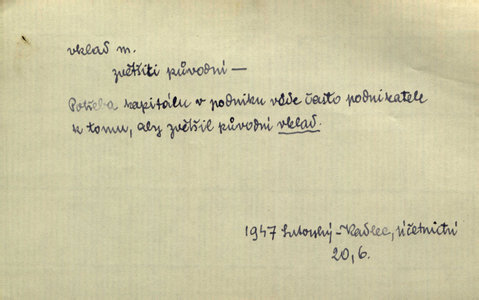 vklad m.
zvětšiti původní —
Potřeba kapitálu v podniku vede často podnikatele
k tomu, aby zvětšil původní vklad.
1947 Lutovský-Kadlec, Účetnictví
20, 6.